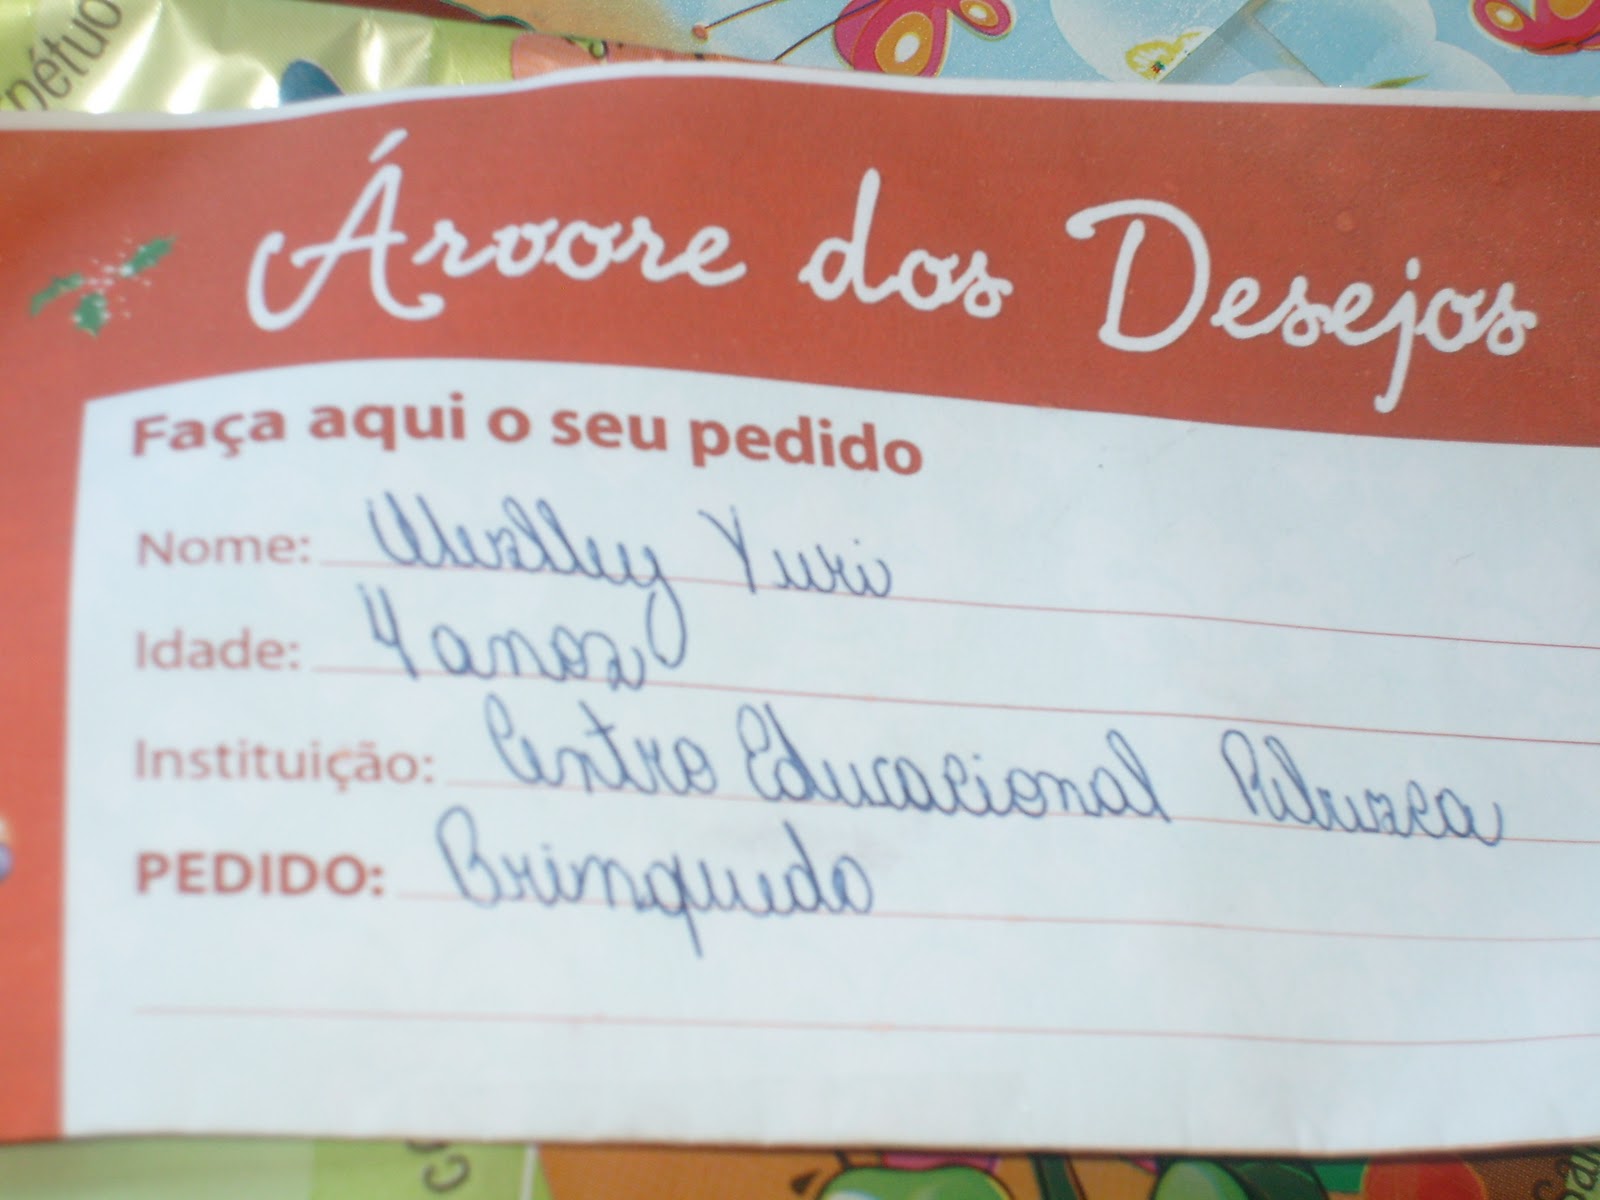 pétuo
Árvore dos Desejos
Faça aqui o seu pedido
Nome: Weslley Yuri
Idade: 4 anos
Instituição: Centro Educacional Rebusca
PEDIDO: Brinquedo